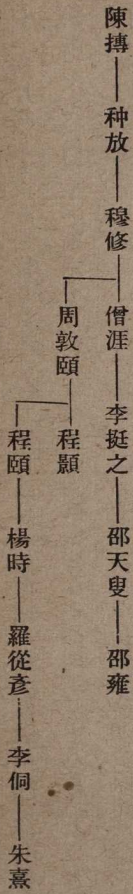 陳摶 种放 穆修 僧涯 李挺之 邵天叟 邵雍
周敦頤 程顥
程頤 楊時 羅從彥 李侗 朱熹